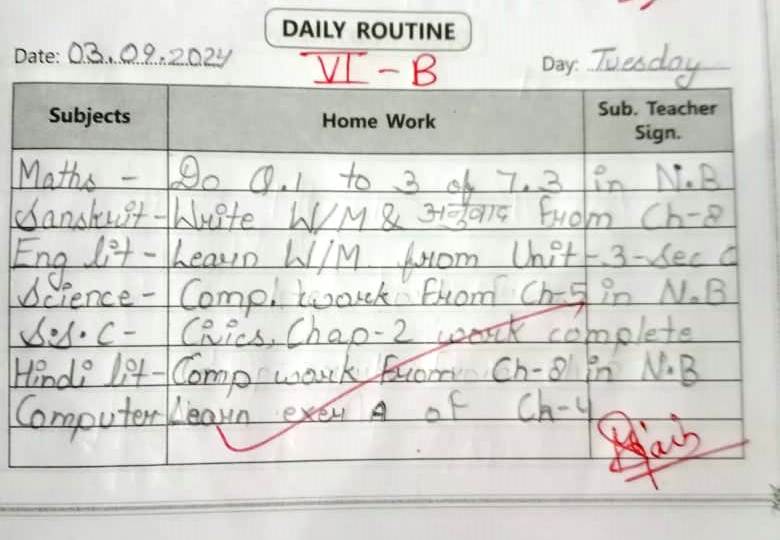 DAILY ROUTINE
Date: 03.09.2024
VI - B
Day: Tuesday
Subjects
Home Work
Sub. Teacher
Sign.
Maths - Do Q.1 to 3 of 7.3 in N.B
Sanskrit - Write W/M & अनुवाद from Ch-8
Eng lit - Learn W/M from Unit-3-Sec C
Science - Comp. work from Ch-5 in N.B
S.S.C - Civics, Chap-2 work complete
Hindi lit - Comp work from Ch-8 in N.B
Computer Learn exer A of Ch-4